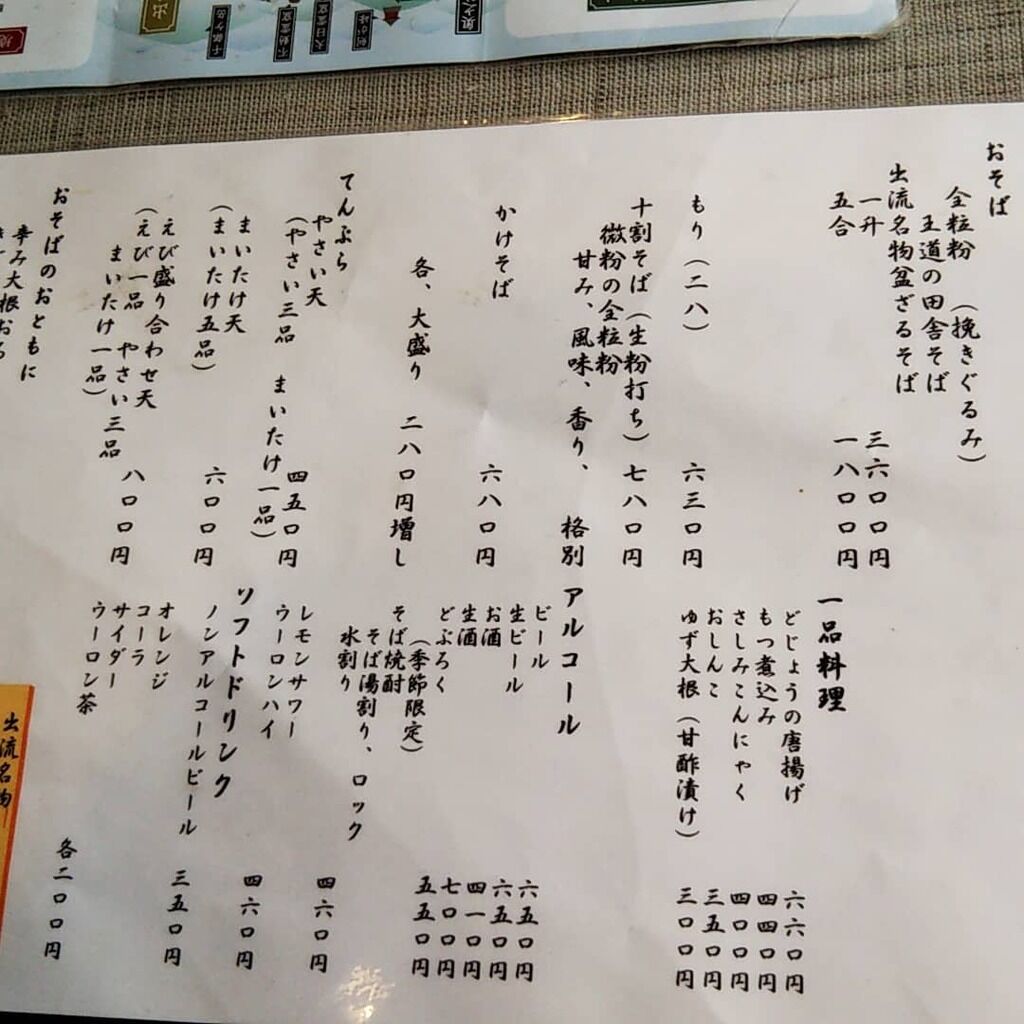 おそば
全粒粉 (挽きぐるみ)
王道の田舎そば
出流名物盆ざるそば
一升 三六〇〇円
五合 一八〇〇円
もり(二八) 六三〇円
十割そば(生粉打ち) 七八〇円
微粉の全粒粉
甘み、風味、香り、格別
かけそば 六八〇円
各、大盛り 二八〇円増し
てんぷら
やさい天 四五〇円
(やさい三品 まいたけ一品)
まいたけ天 六〇〇円
(まいたけ五品)
えび盛り合わせ天 八〇〇円
(えび一品 やさい三品
まいたけ一品)
おそばのおともに
辛み大根おろ
一品料理
どじょうの唐揚げ 六六〇円
もつ煮込み 四四〇円
さしみこんにゃく 四〇〇円
おしんこ 三五〇円
ゆず大根(甘酢漬け) 三〇〇円
アルコール
ビール 六五〇円
生ビール 六五〇円
お酒 四一〇円
生酒 七〇〇円
どぶろく 五五〇円
(季節限定)
そば焼酎
そば湯割り、ロック
水割り 四六〇円
レモンサワー
ウーロンハイ 四六〇円
ソフトドリンク
ノンアルコールビール 三五〇円
オレンジ
コーラ
サイダー
ウーロン茶
各二〇〇円
出流名物